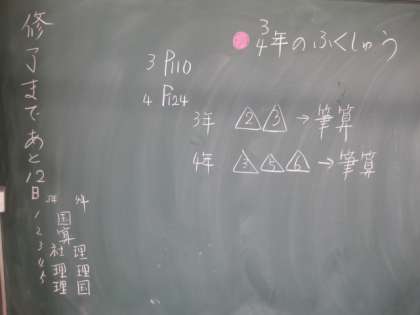 修了まであと12日
3/4年のふくしゅう
3 P110
4 P124
3年 2 3 → 筆算
4年 3 5 6 → 筆算
3年 4年
1 国
2 算
3 社 理
4 理 理
5 理 国